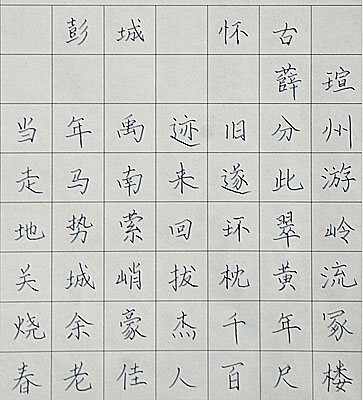 彭城 怀古
薛瑄
当年禹迹旧分州
走马南来遂此游
地势萦回环翠岭
关城峭拔枕黄流
烧余豪杰千年冢
春老佳人百尺楼